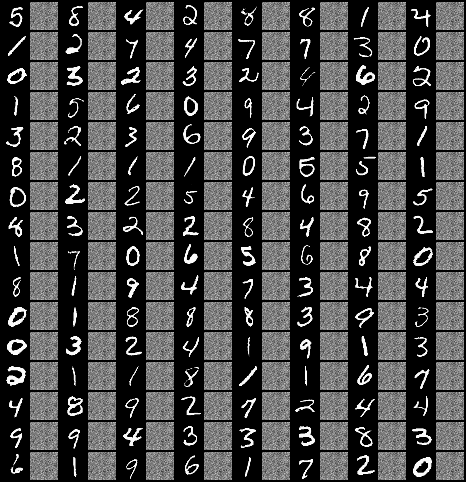 5 8 4 2 8 8 1 4
1 2 7 4 7 7 3 0
0 3 2 3 2 4 6 2
1 5 6 0 9 4 2 9
3 2 3 6 9 3 7 1
8 1 1 1 0 5 5 1
0 2 2 5 4 6 9 5
8 3 2 2 8 4 8 2
1 7 0 6 5 6 8 0
8 1 9 4 7 3 4 4
0 1 8 8 8 3 9 3
0 3 2 4 1 9 1 3
2 1 1 8 1 1 6 7
4 8 9 2 7 2 4 4
9 9 4 3 3 3 8 3
6 1 9 6 1 7 2 0